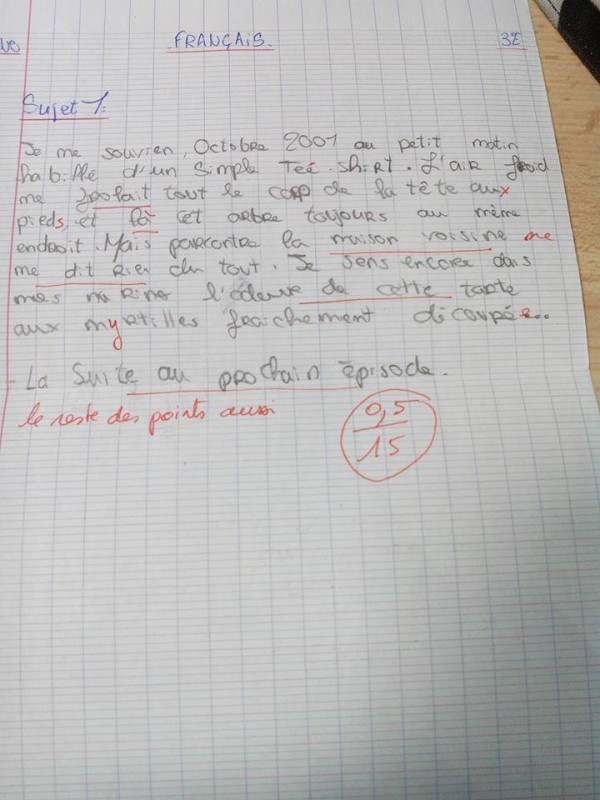 FRANÇAIS.
3E
Sujet 1:
Je me souvien, Octobre 2001 au petit matin
habillé d'un simple Teé-shirt. L'air froid
me grofait tout le corp de la tête aux
pieds, et là cet arbre toujours au même
endroit. Mais parcontre la maison voisine ne
me dit rien du tout. Je sens encore dans
mes narine l'odeure de cette tarte
aux myrtilles fraichement découpée...
- La Suite au prochain épisode.
le reste des points aussi
0,5
15